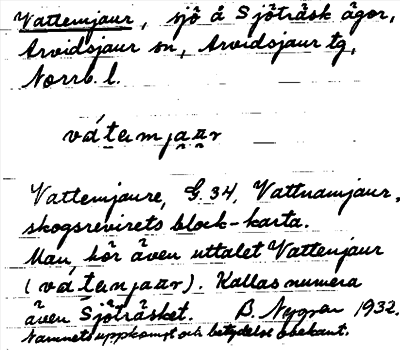 Vattemjaur, sjö å Sjöträsk ägor,
Arvidsjaur sn, Arvidsjaur tg,
Norrb. l.
vátamjaar
Vattemjaure, G. 34, Vattnamjaur,
skogsrevirets block-karta.
Man hör även uttalet Vattenjaur
(vátanjaar). Kallas numera
även Sjöträsket. B. Nygren 1932.
Namnets uppkomst och betydelse obekant.